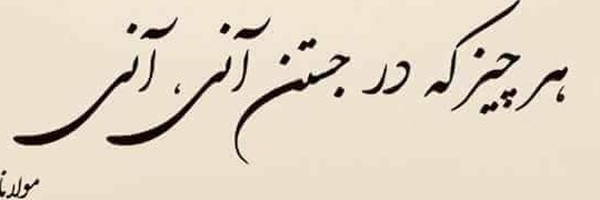 هر چیز که در جستن آنی، آنی
مولانا